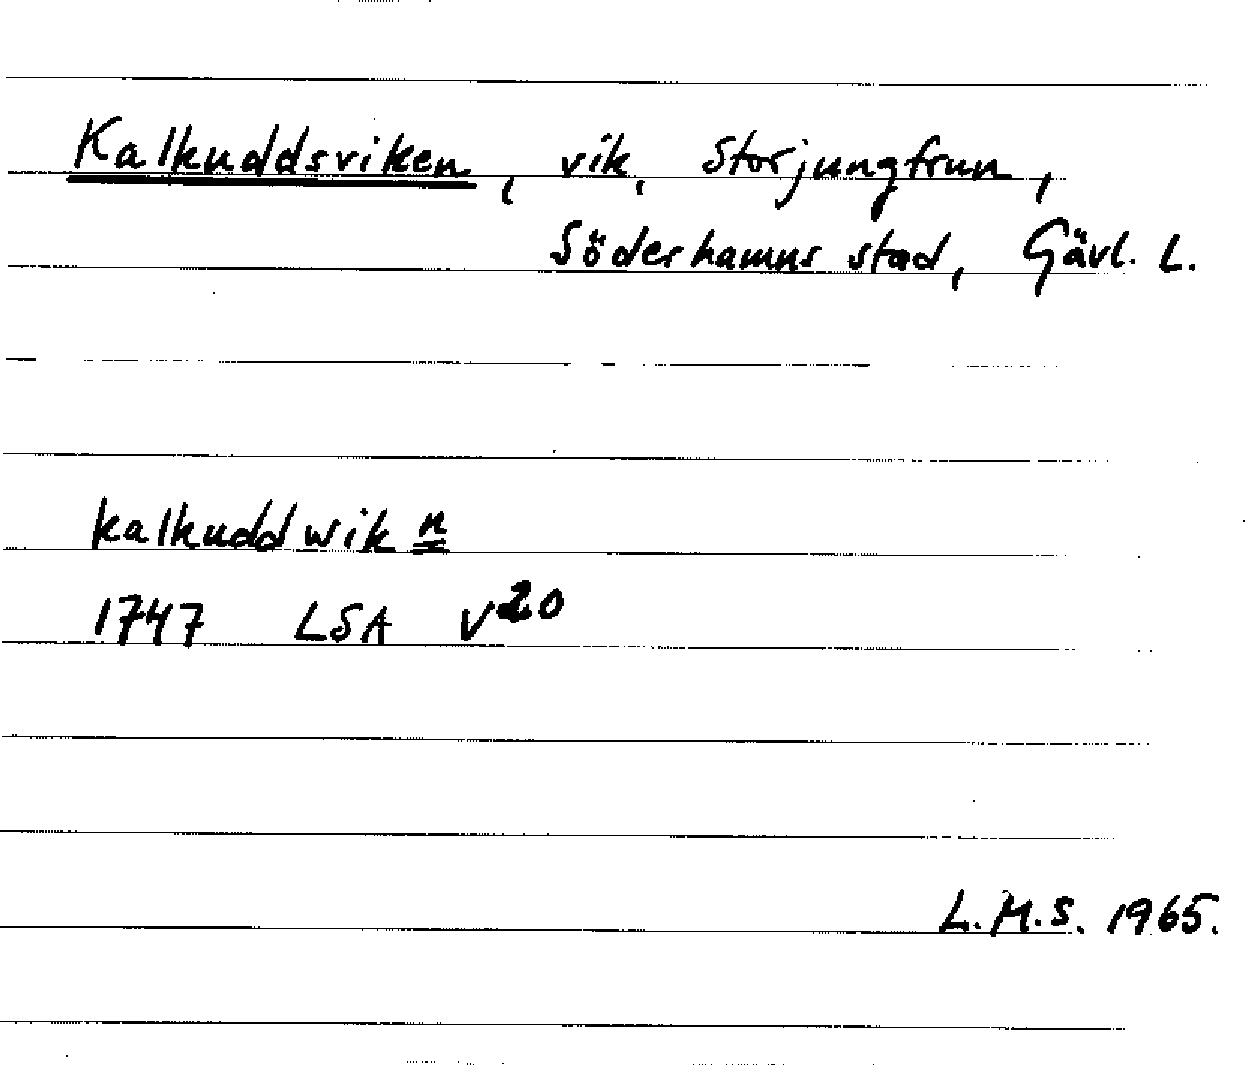 Kalkuddsviken, vik, Storjungfrun,
Söderhamns stad, Gävl. L.
kalkuddwik n
1747 LSA V20
L.M.S. 1965.